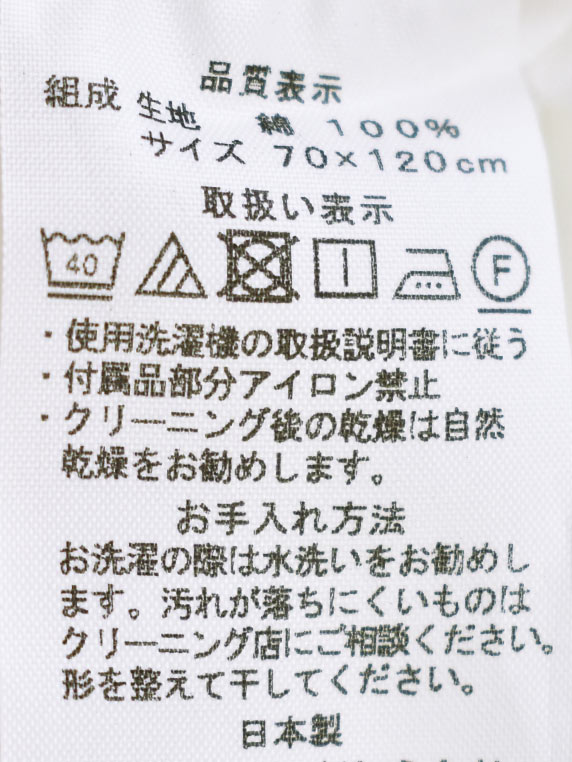 品質表示
組成 生地 綿 100%
サイズ 70×120cm
取扱い表示
40 F
・使用洗濯機の取扱説明書に従う
・付属品部分アイロン禁止
・クリーニング後の乾燥は自然
乾燥をお勧めします。
お手入れ方法
お洗濯の際は水洗いをお勧めし
ます。汚れが落ちにくいものは
クリーニング店にご相談ください。
形を整えて干してください。
日本製